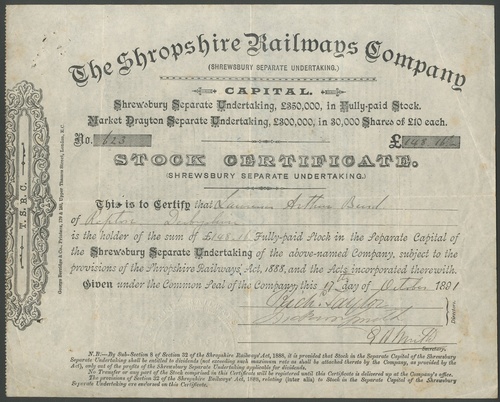 The Shropshire Railways Company
(SHREWSBURY SEPARATE UNDERTAKING.)
CAPITAL.
Shrewsbury Separate Undertaking, £350,000, in Fully-paid Stock.
Market Drayton Separate Undertaking, £300,000, in 30,000 Shares of £10 each.
No. 623 £148.16
STOCK CERTIFICATE.
(SHREWSBURY SEPARATE UNDERTAKING.)
This is to Certify that Laurence Arthur
of Repton
is the holder of the sum of £148.16 Fully-paid Stock in the Separate Capital of
the Shrewsbury Separate Undertaking of the above-named Company, subject to the
provisions of the Shropshire Railways' Act, 1888, and the Acts incorporated therewith.
Given under the Common Seal of the Company, this day of October 1891
Taylor
Smith
Directors.
Secretary.
N.B.—By Sub-Section 8 of Section 32 of the Shropshire Railways' Act, 1888, it is provided that Stock in the Separate Capital of the Shrewsbury
Separate Undertaking shall be entitled to dividends (not exceeding such maximum rate as shall be attached thereto by the Company, as provided by the
Act), only out of the profits of the Shrewsbury Separate Undertaking applicable for dividends.
No Transfer of any part of the Stock comprised in this Certificate will be registered until this Certificate is delivered up at the Company's office.
The provisions of Section 32 of the Shropshire Railways' Act, 1888, relating (inter alia) to Stock in the Separate Capital of the Shrewsbury
Separate Undertaking are endorsed on this Certificate.
T. S. R. C.
Printers, Upper Thames Street, London, E.C.